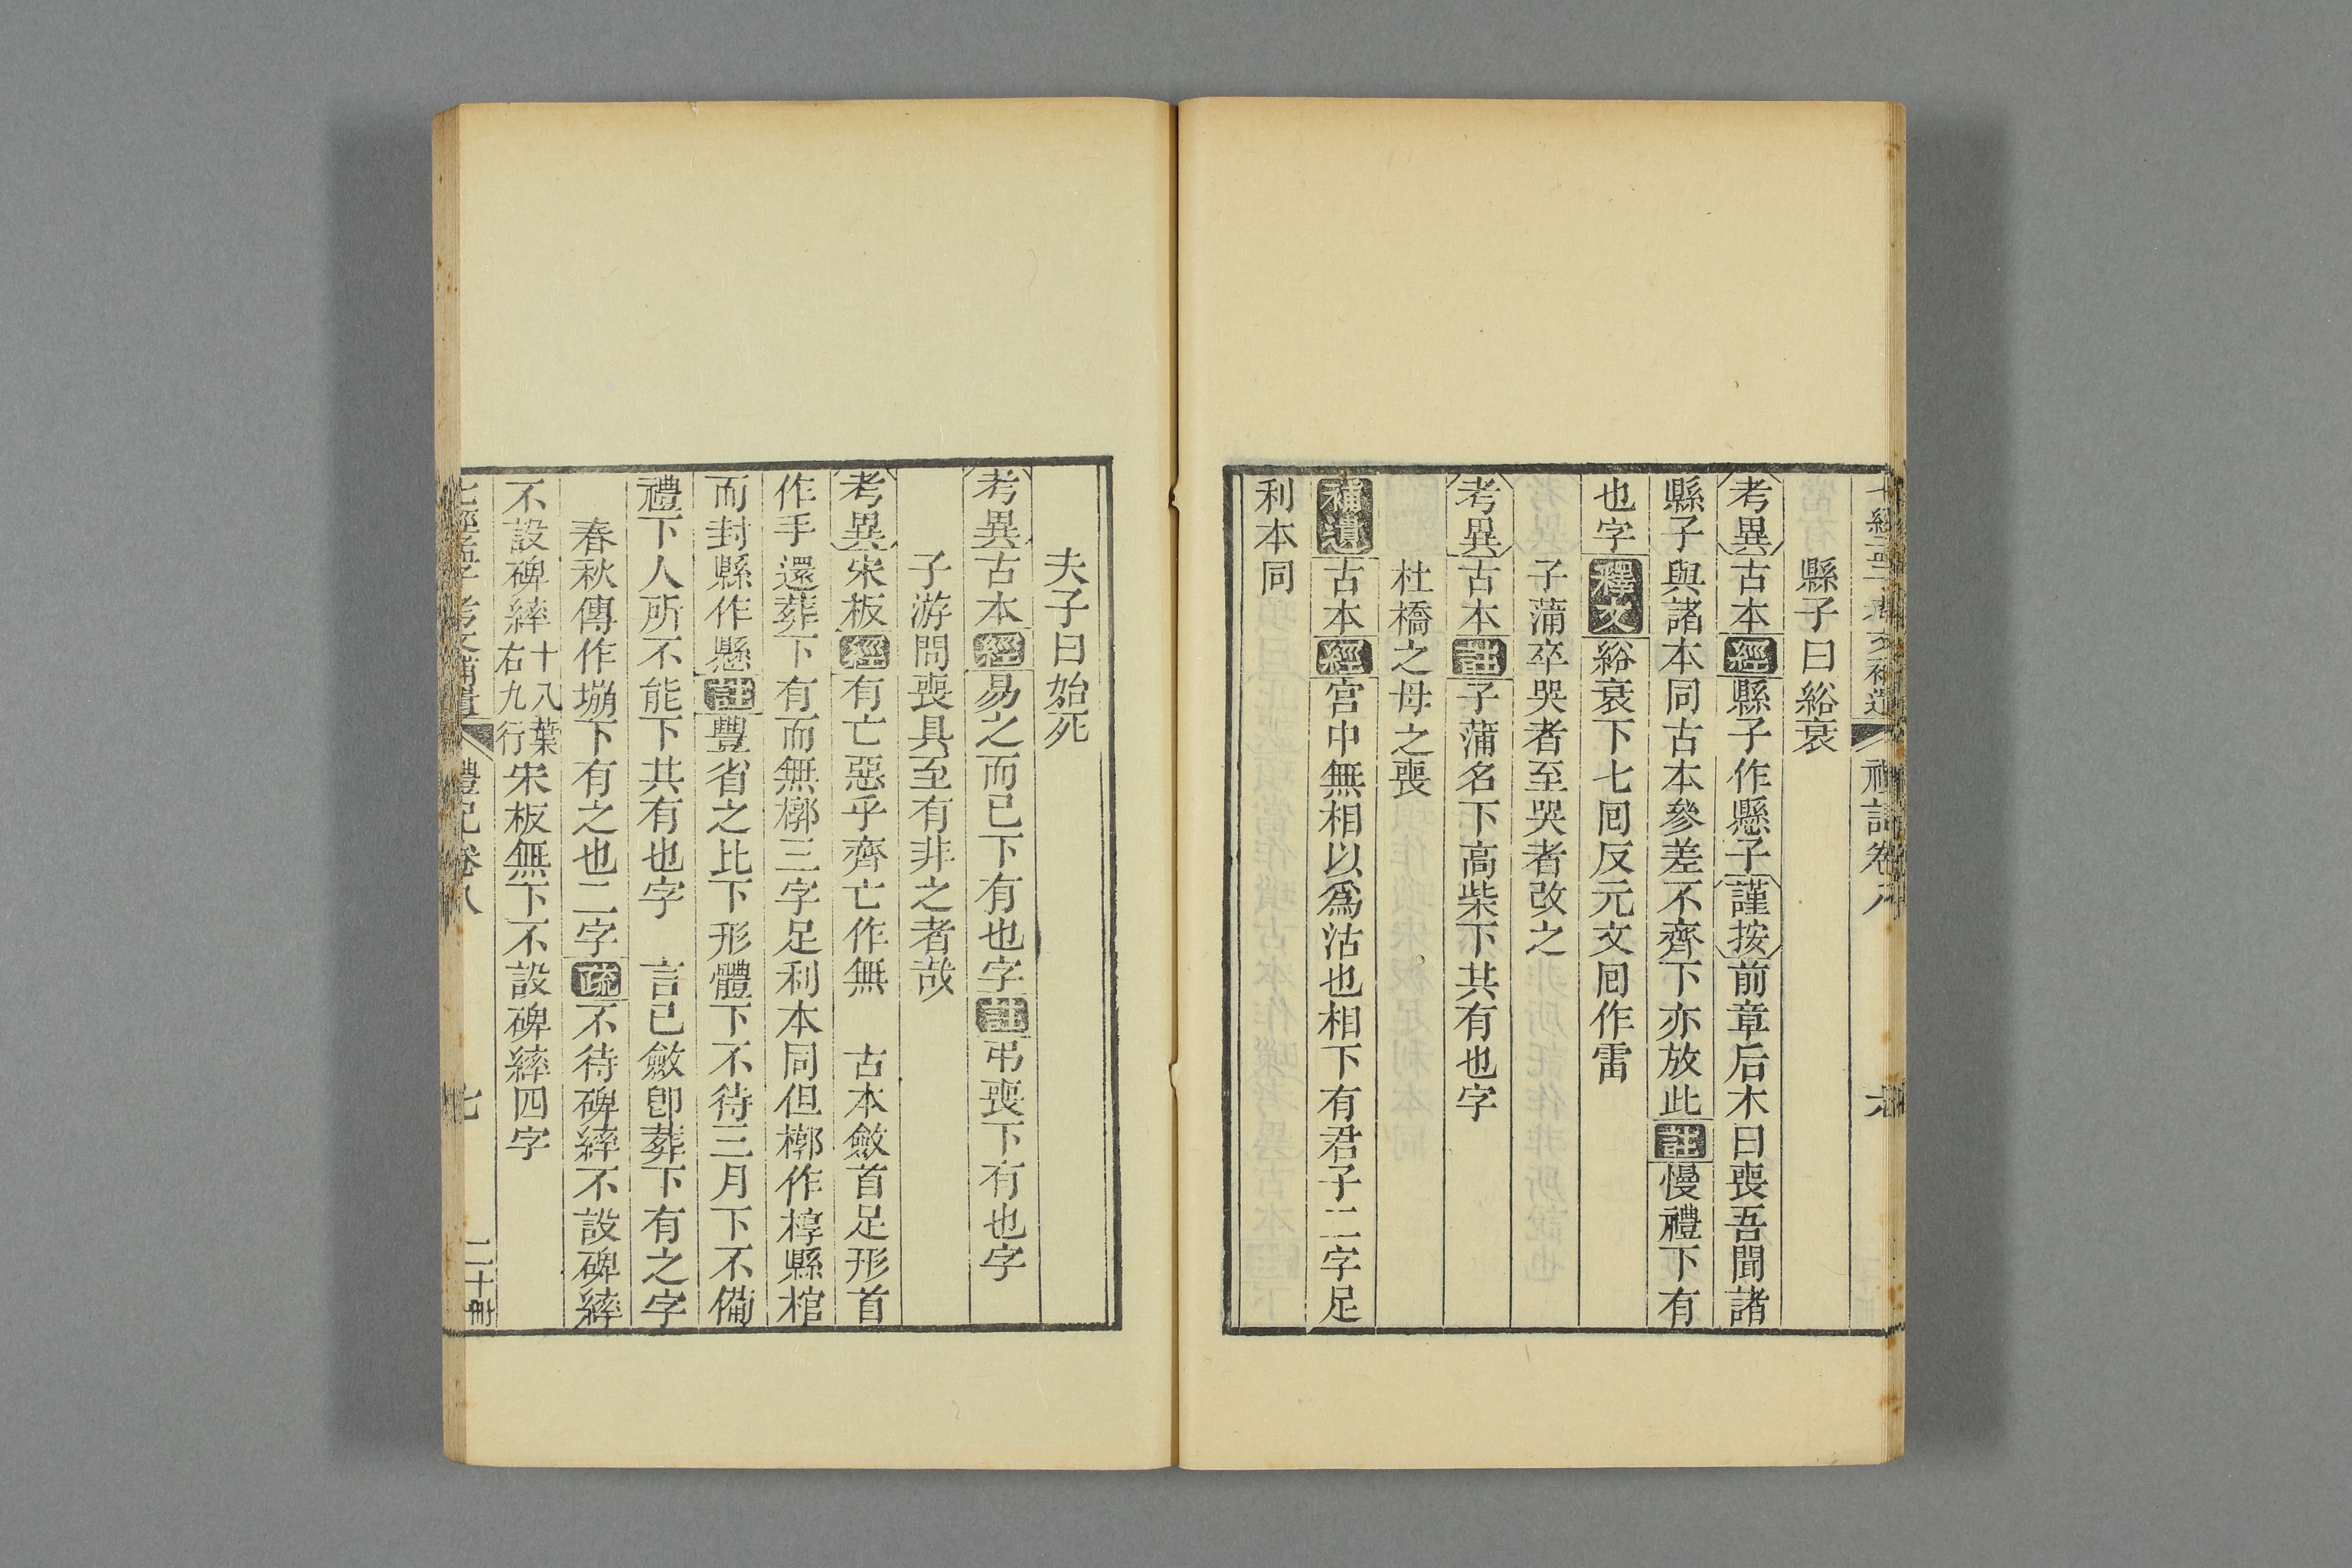 縣子曰綌衰
考異古本經縣子作懸子謹按前章后木曰喪吾聞諸
縣子與諸本同古本參差不齊下亦放此註慢禮下有
也字釋文綌衰下七囘反元文囘作雷
子蒲卒哭者至哭者改之
考異古本註子蒲名下高柴下共有也字
杜橋之母之喪
補遺古本經宮中無相以爲沽也相下有君子二字足
利本同
夫子曰始死
考異古本經易之而已下有也字註弔喪下有也字
子游問喪具至有非之者哉
考異宋板經有亡惡乎齊亡作無　古本斂首足形首
作手還葬下有而無槨三字足利本同但槨作椁縣棺
而封縣作懸註豐省之比下形體下不待三月下不備
禮下人所不能下共有也字　言已斂卽葬下有之字
春秋傳作塴下有之也二字疏不待碑繂不設碑繂
不設碑繂十八葉右九行宋板無下不設碑繂四字
禮記卷八
七
二十冊